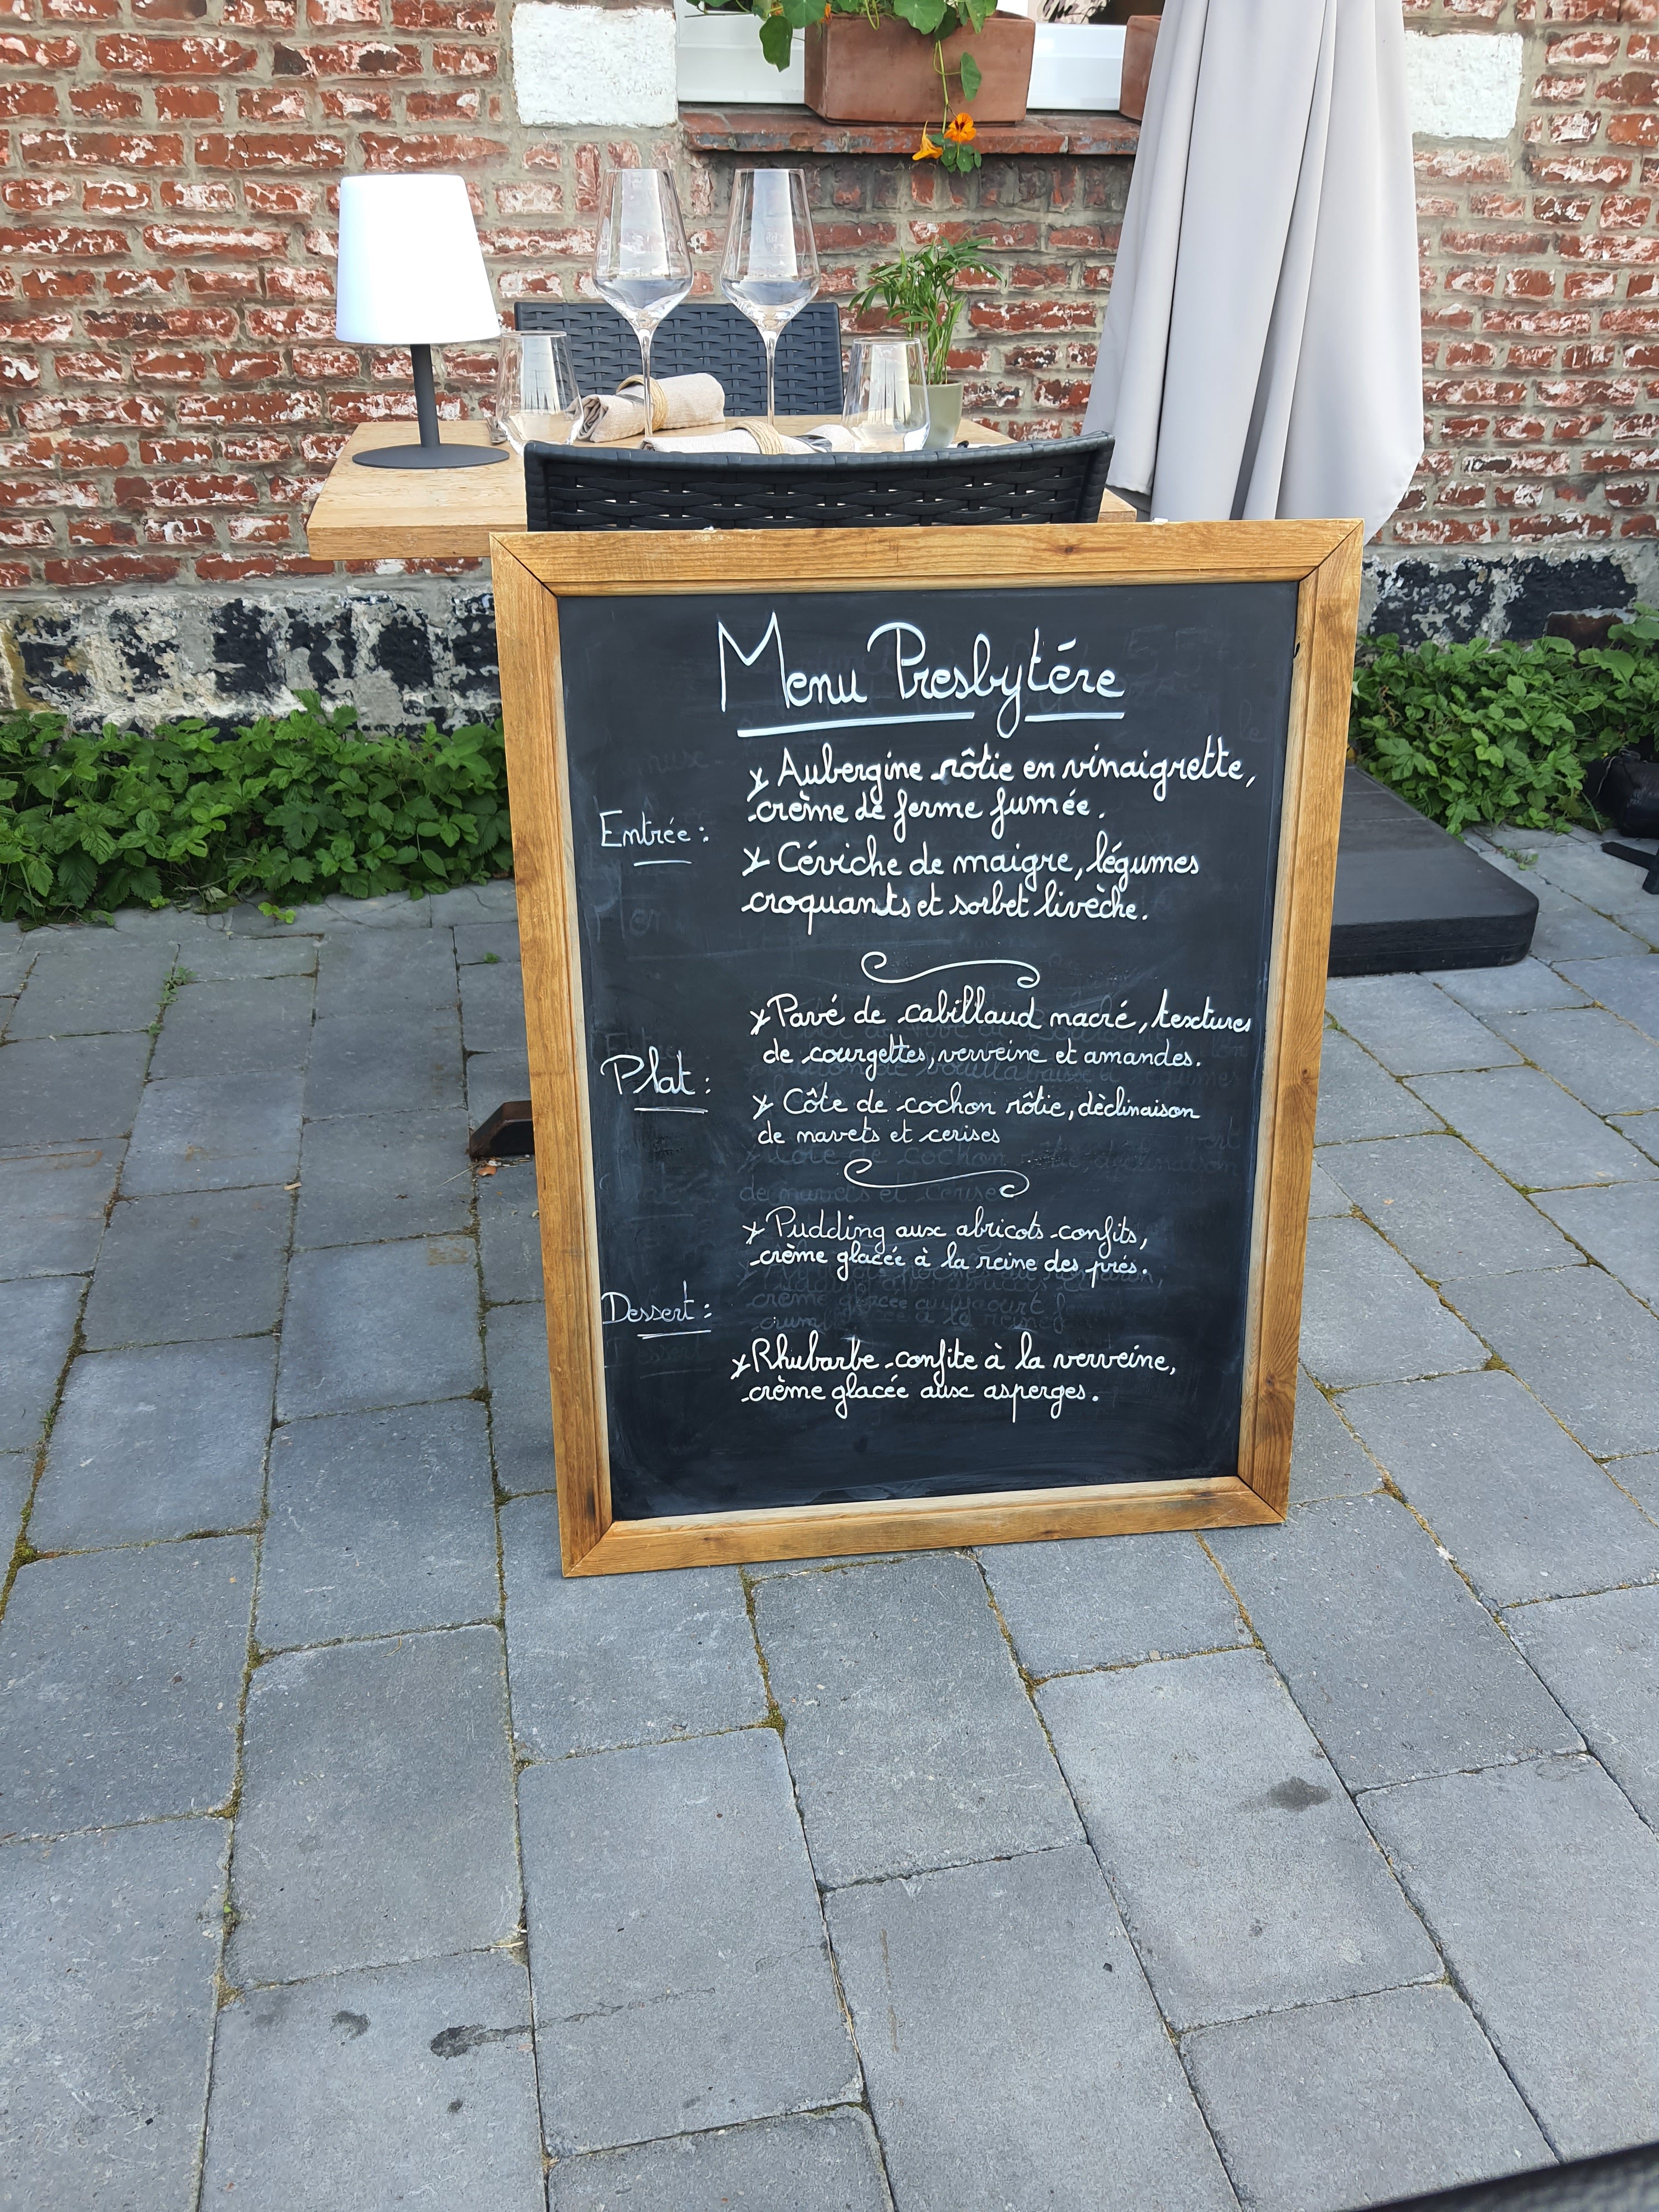 Menu Presbytére
Entrée :
Aubergine rôtie en vinaigrette,
crème de ferme fumée.
Céviche de maigre, légumes
croquants et sorbet livèche.
Plat :
Pavé de cabillaud nacré, textures
de courgettes, verveine et amandes.
Côte de cochon rôtie, dèclinaison
de navets et cerises
Dessert :
Pudding aux abricots confits,
crème glacée à la reine des prés.
Rhubarbe confite à la verveine,
crème glacée aux asperges.